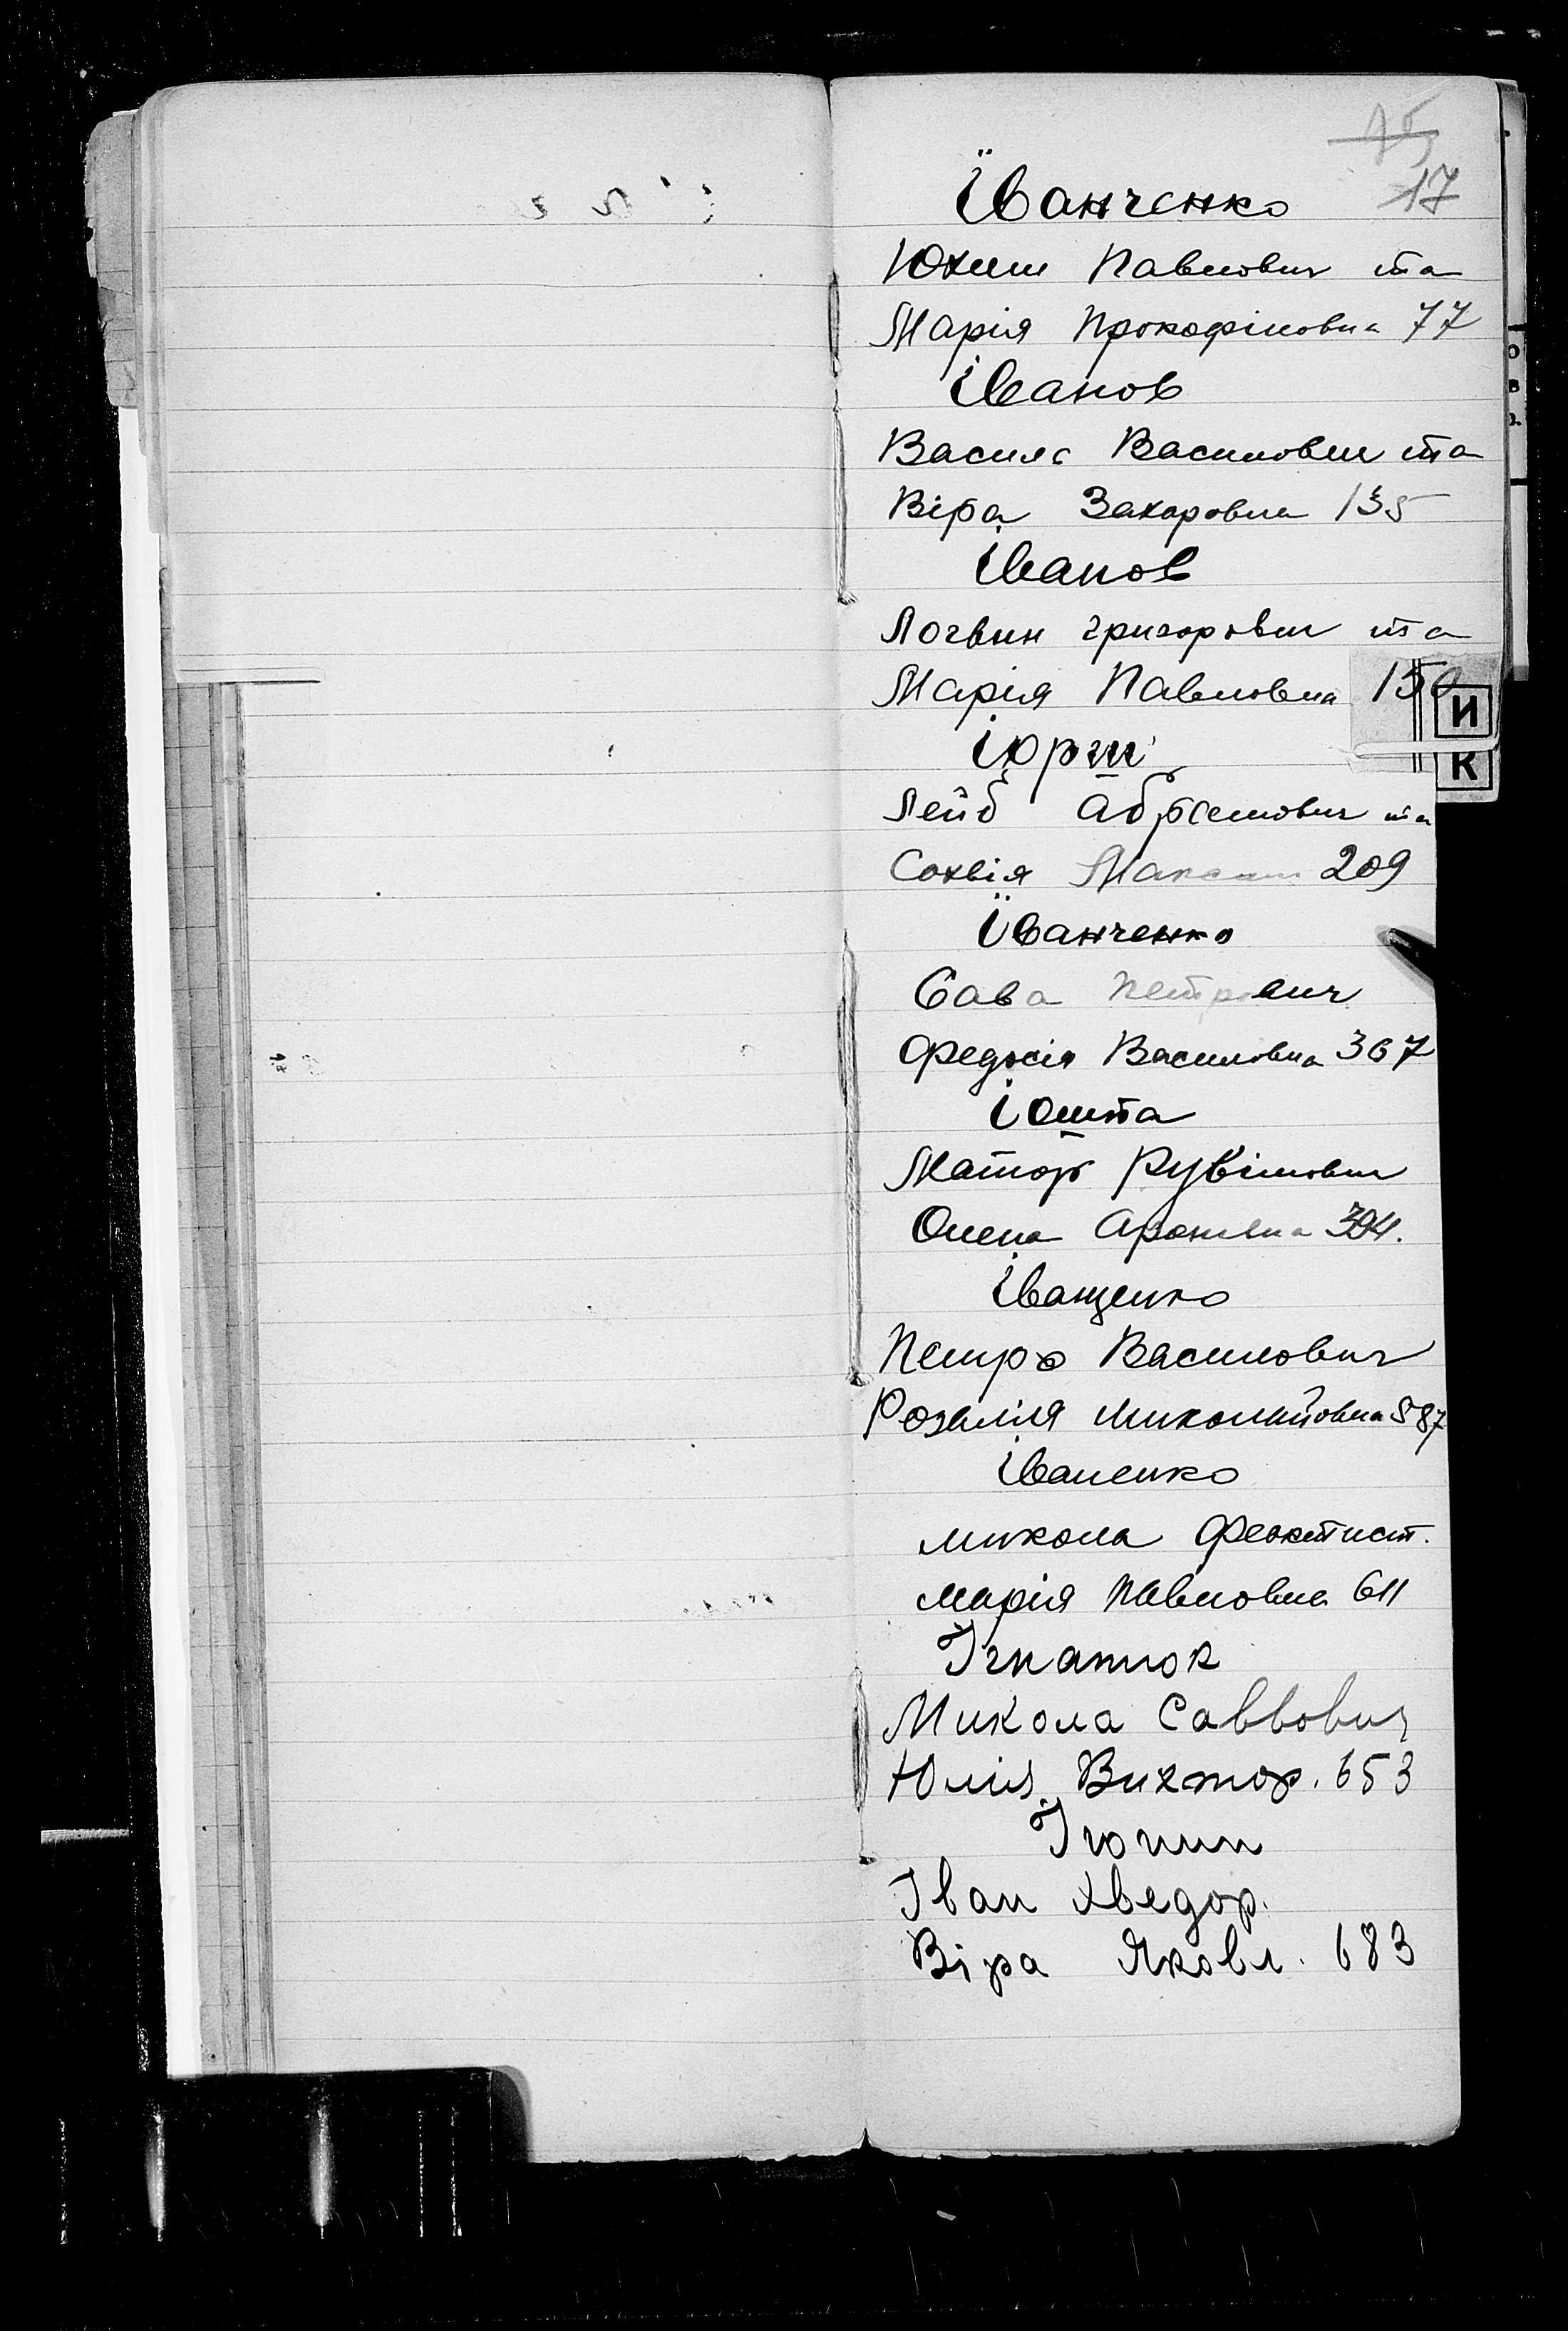 17
Їванченко
Юхим Павлович та
Марія Прокофіловна 77
Іванов
Василь Василович та
Віра Захаровна 135
Іванов
Логвин Григорович та
Марія Павловна 150
И
К
Лейб Абрамович та
Сохвія 209
Їванченко
Сава Петрович
Федосія Василовна 367
Іошпа
Матор Рувімович
Олена Ароновна 394.
Іващенко
Петро Василович
Розалія Миколайовна 587
Іваненко
Микола Феоктист.
Марія Павловна 611
Ігнатюк
Микола Саввович
Юлія Виктор. 653
Ігонин
Іван Хведор.
Віра Яковл. 683